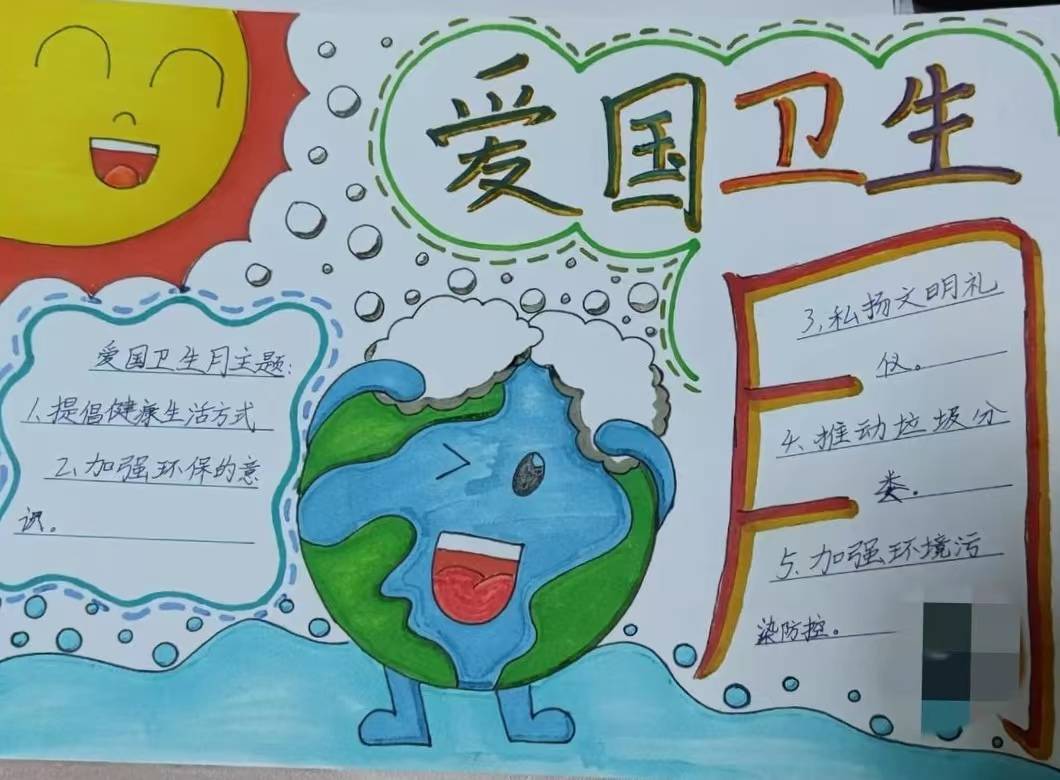 爱国卫生月
爱国卫生月主题:
1、提倡健康生活方式
2、加强环保的意
识。
3、私扬文明礼
仪。
4、推动垃圾分
类。
5、加强环境污
染防控。